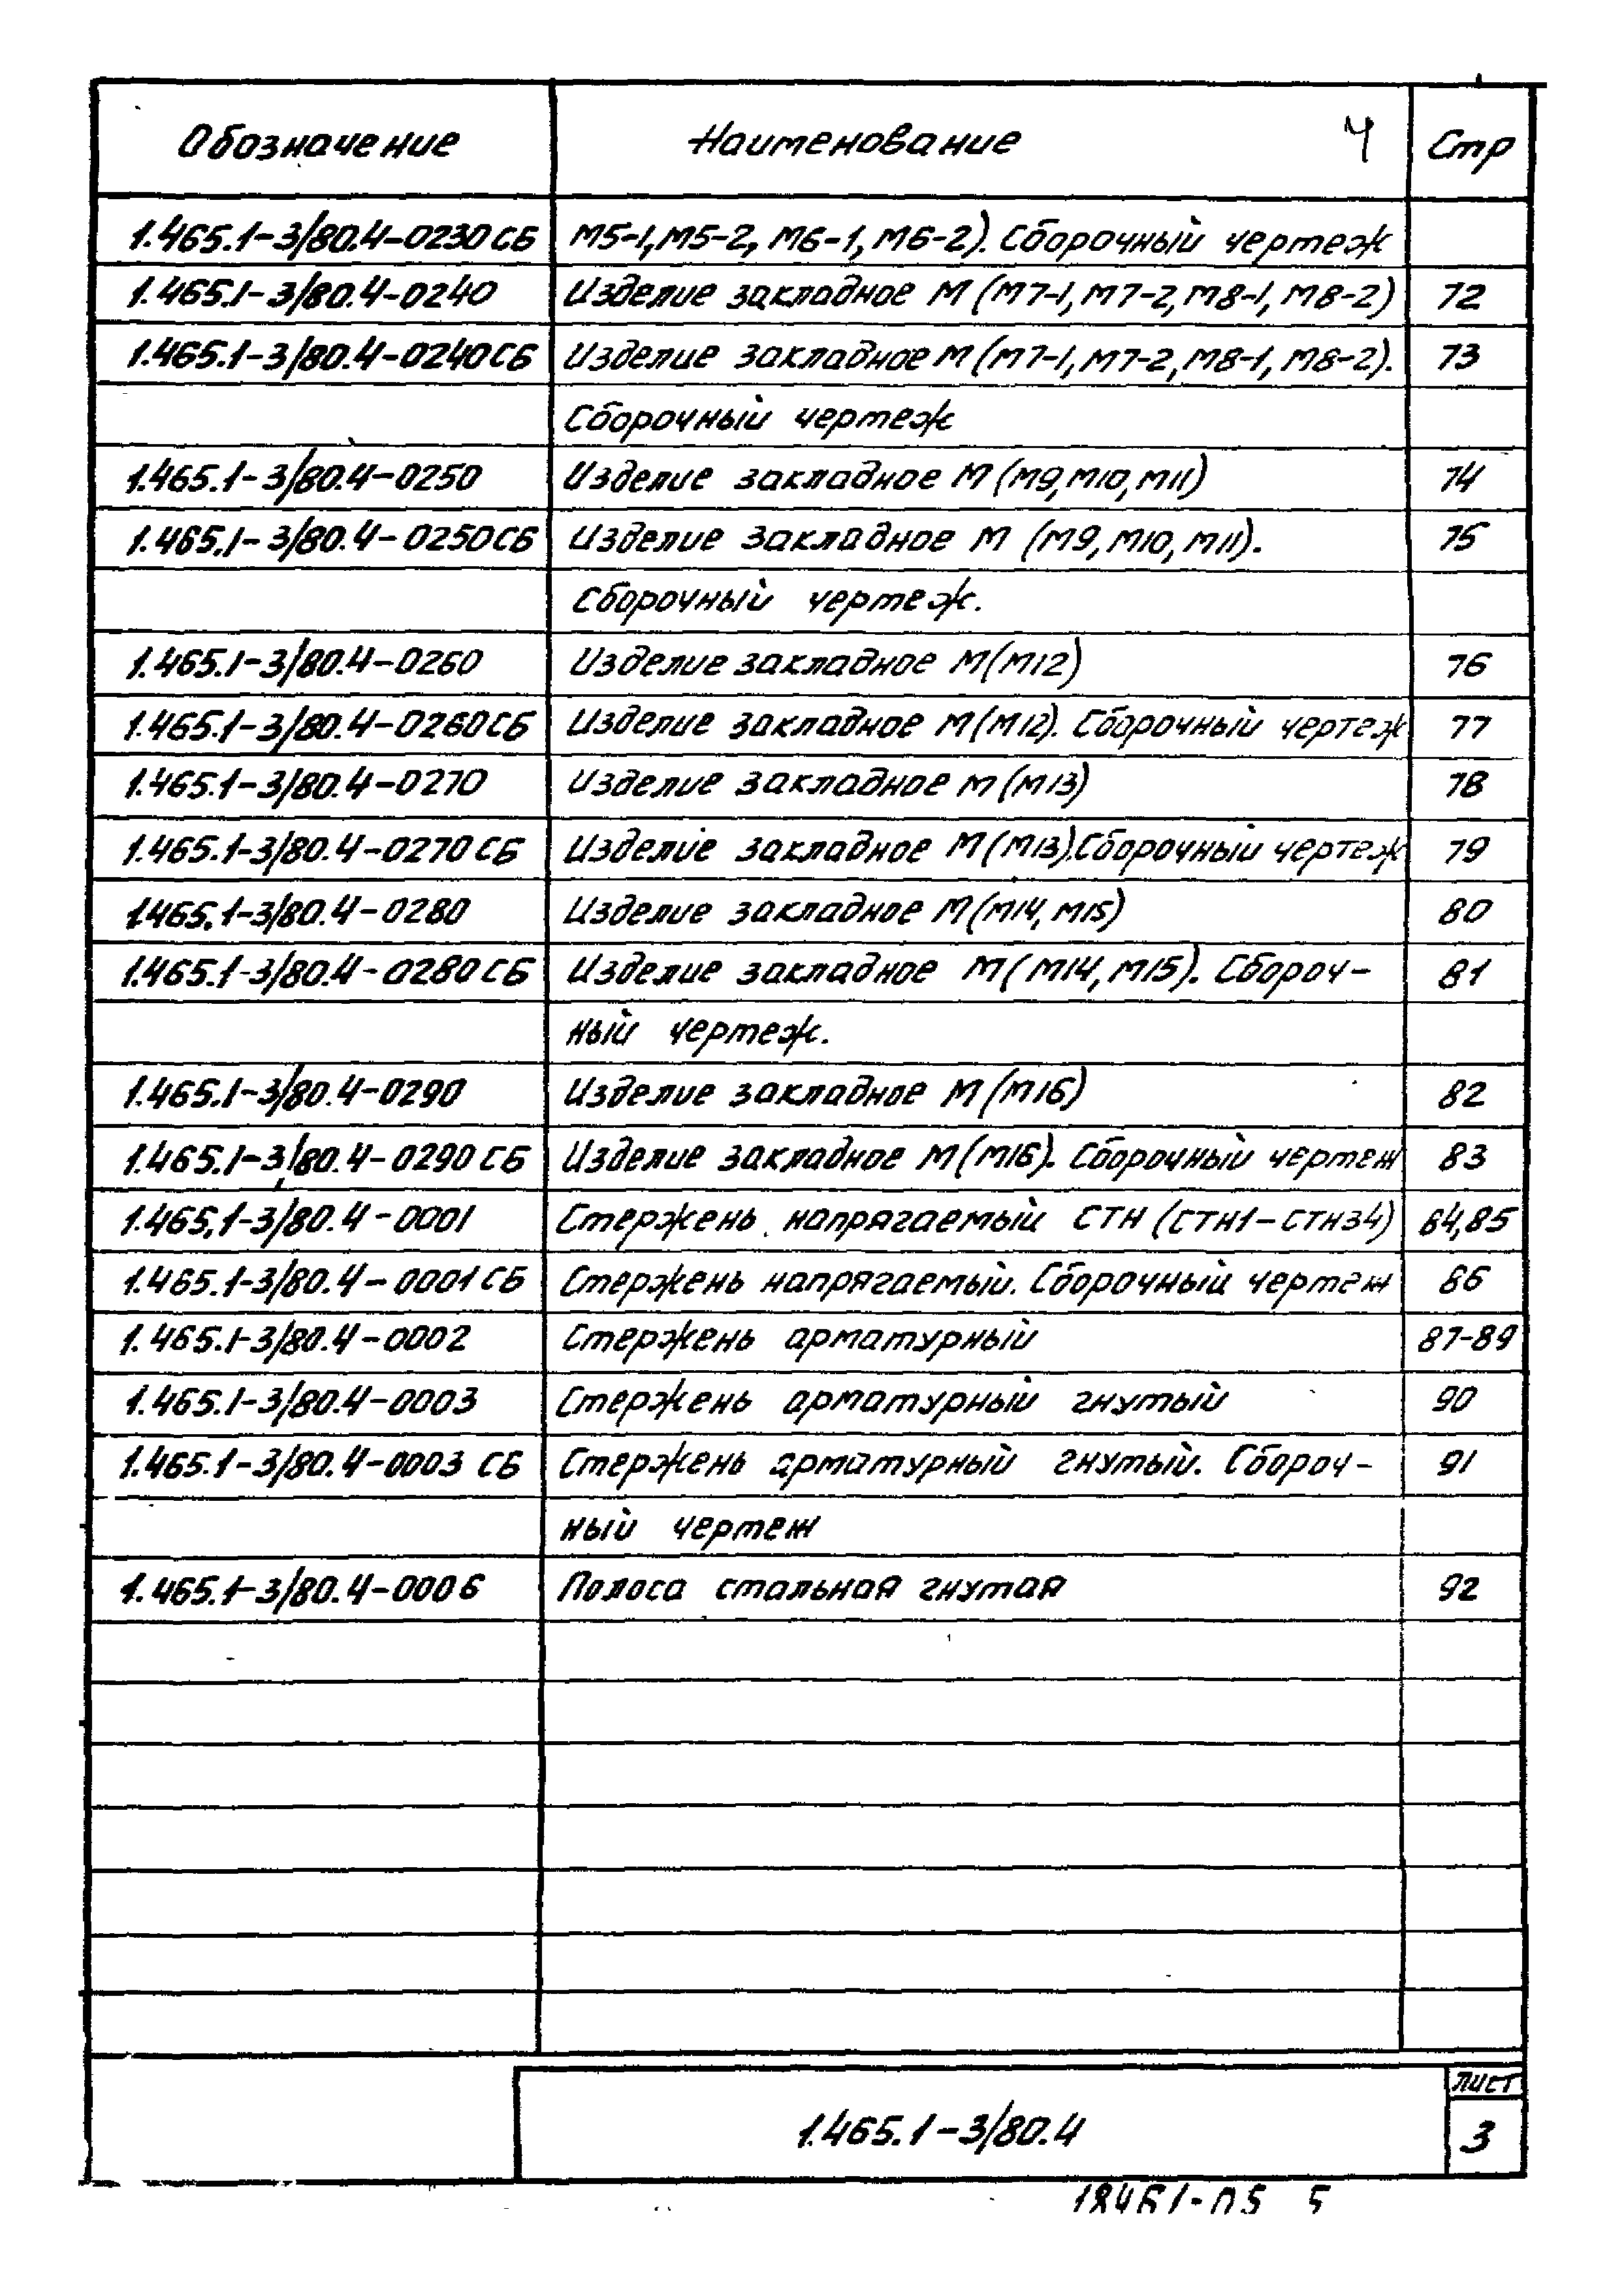 Обозначение Наименование 4 Стр
1.465.1-3/80.4-0230СБ М5-1, М5-2, М6-1, М6-2). Сборочный чертеж
1.465.1-3/80.4-0240 Изделие закладное М (М7-1, М7-2, М8-1, М8-2) 72
1.465.1-3/80.4-0240СБ Изделие закладное М (М7-1, М7-2, М8-1, М8-2). 73
Сборочный чертеж
1.465.1-3/80.4-0250 Изделие закладное М (М9, М10, М11) 74
1.465.1-3/80.4-0250СБ Изделие закладное М (М9, М10, М11). 75
Сборочный чертеж.
1.465.1-3/80.4-0260 Изделие закладное М (М12) 76
1.465.1-3/80.4-0260СБ Изделие закладное М (М12). Сборочный чертеж 77
1.465.1-3/80.4-0270 Изделие закладное М (М13) 78
1.465.1-3/80.4-0270СБ Изделие закладное М (М13). Сборочный чертеж 79
1.465.1-3/80.4-0280 Изделие закладное М (М14, М15) 80
1.465.1-3/80.4-0280СБ Изделие закладное М (М14, М15). Сбороч-  81
ный чертеж.
1.465.1-3/80.4-0290 Изделие закладное М (М16) 82
1.465.1-3/80.4-0290СБ Изделие закладное М (М16). Сборочный чертеж 83
1.465.1-3/80.4-0001 Стержень напрягаемый СТН (СТН1-СТН34) 84,85
1.465.1-3/80.4-0001СБ Стержень напрягаемый. Сборочный чертеж 86
1.465.1-3/80.4-0002 Стержень арматурный 87-89
1.465.1-3/80.4-0003 Стержень арматурный гнутый 90
1.465.1-3/80.4-0003 СБ Стержень арматурный гнутый. Сбороч- 91
ный чертеж
1.465.1-3/80.4-0006 Полоса стальная гнутая 92
1.465.1-3/80.4
лист
3
18461-05 5